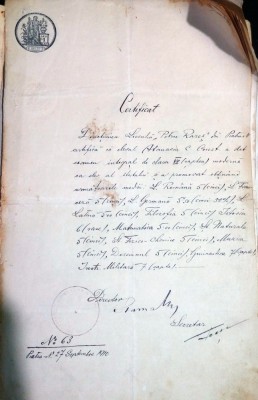 Certificat
Direcțiunea Liceului „Petru Rareș" din Piatra N.
certifică că elevul Atanasiu C. Const. a dat
examen integral de clasa VII (șaptea) modernă
ca elev al statului și a promovat obținând
următoarele medii: L. Română 5 (cinci), L. Fran
ceză 5 (cinci), L. Germană 5.20 (cinci 20%),
L. Latină 5 (cinci), Filosofia 5 (cinci), Istoria
6 (șase), Matematica 5 (cinci), Șt. Naturale
5 (cinci), Șt. Fizico-Chimice 5 (cinci), Muzica
5 (cinci), Desemnul 5 (cinci), Gimnastica 7 (șapte),
Instr. Militară 7 (șapte)
Director
Secretar
No 63
Piatra N. 27 Septembrie